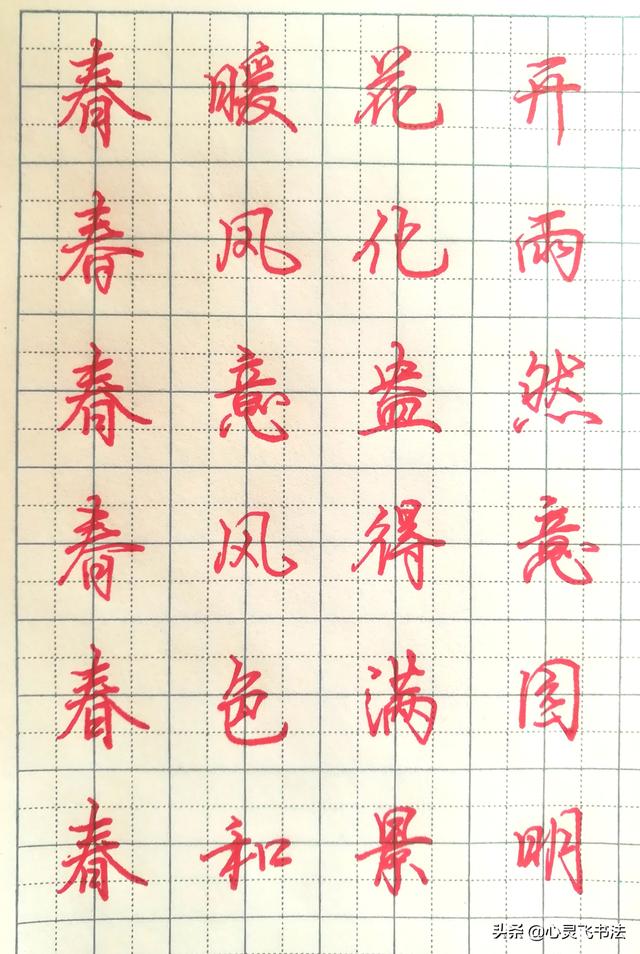 春暖花开
春风化雨
春意盎然
春风得意
春色满园
春和景明
头条 @心灵飞书法